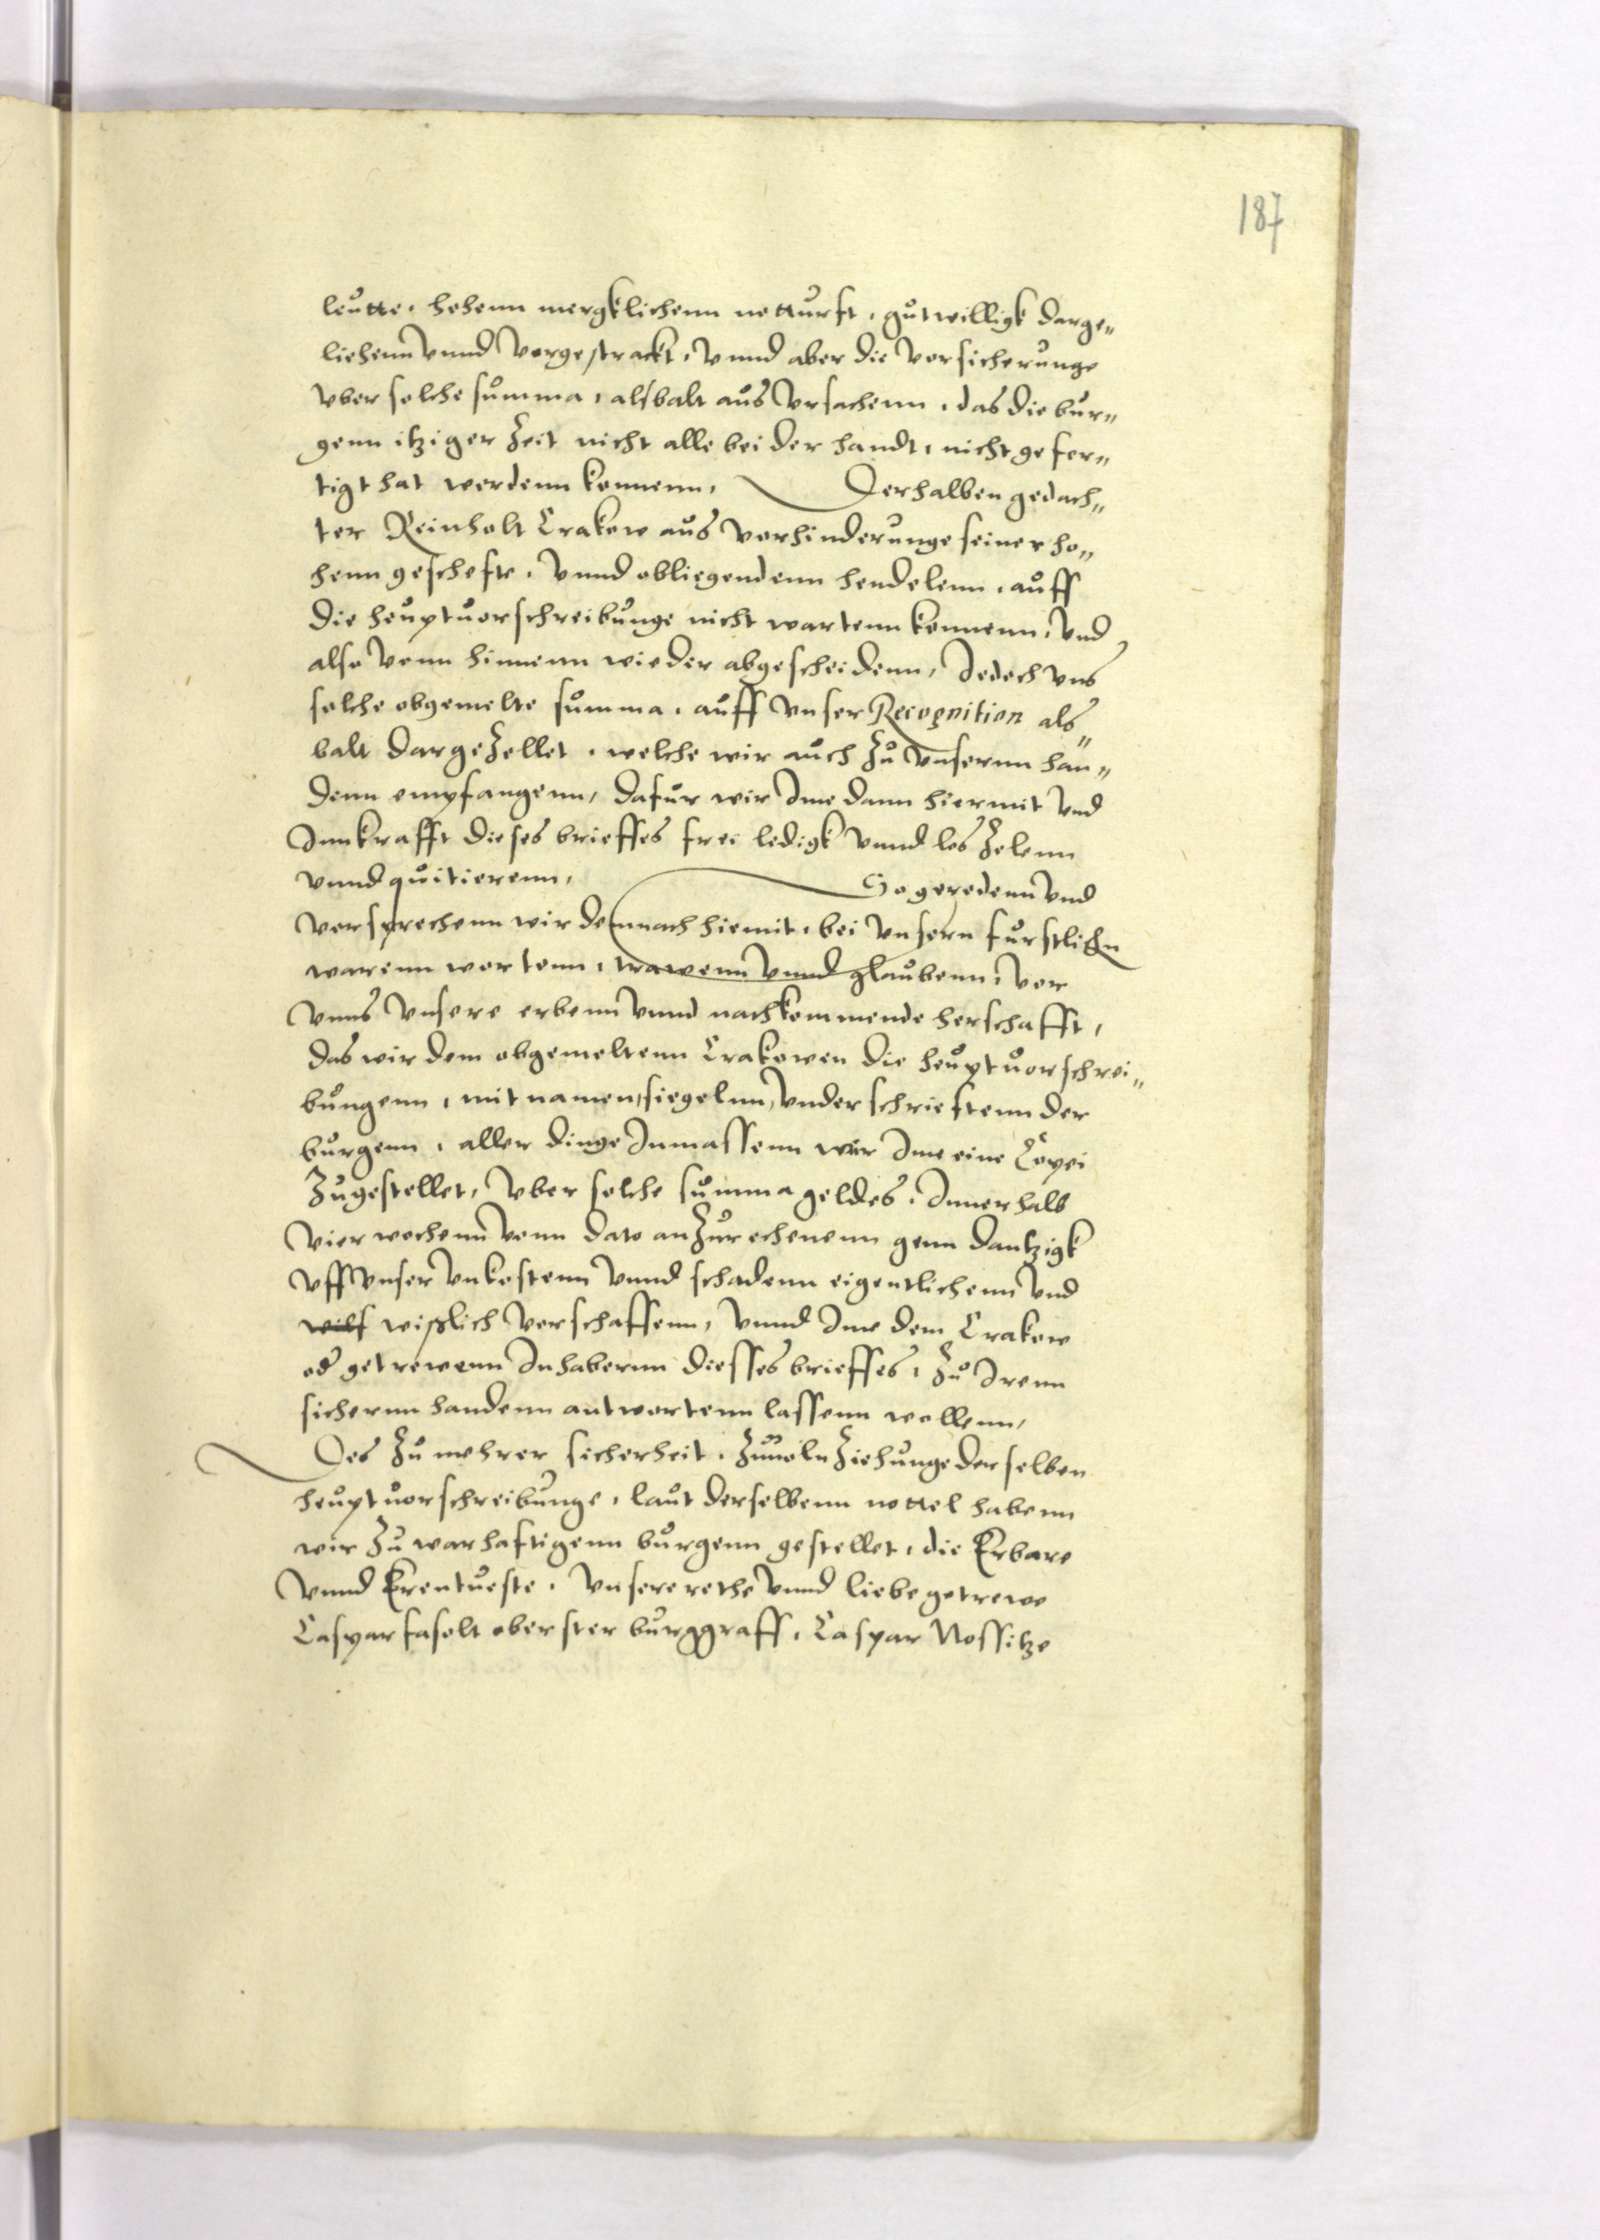 187
leutte, hohenn mergklichenn notturft, gutwilligk darge„
liehenn vnnd vorgestrackt, vnnd aber die vorsicherunge
vber solche summa, alsbalt aus vrsachenn, das die bur„
genn itziger Zeit nicht alle bei der handt, nicht gefer„
tigt hat werdenn konnenn, Derhalben gedach„
ter Reinholt Crakow aus vorhinderunge seiner ho„
henn geschefte, vnnd obliegendenn hendelenn, auff
die heuptuorschreibunge nicht wartenn konnenn, vnd
also vonn hinnenn wieder abgescheidenn, Jedoch vns
solche obgemelte summa, auff vnser Recognition als„
balt dargezellet, welche wir auch Zu vnsernn han„
denn empfangenn, dafur wir Ime dann hiermit vnd
Innkrafft dieses brieffes frei ledigk vnnd los Zelenn
vnnd quitierenn, So geredenn vnd
versprechenn wir demnach hiemit, bei vnsern furstlichn
warenn wortenn, trawenn vnnd glaubenn, vor
vnns vnsere erbenn vnnd nachkommende herschafft,
das wir dem obgemeltenn Crakowen die heuptuorschrei„
bungenn, mit namen, siegelnn, vnderschrieftenn der
burgenn, aller dinge Inmassenn wir Ime eine Copei
Zugestellet, vber solche summa geldes, Innerhalb
vier wochenn vonn dato anzurechenenn genn Dantzigk
vff vnser vnkostenn vnnd schadenn eigentlichenn vnd
wißlich vorschaffenn, vnnd Ime dem Crakow
od getrewenn Inhabernn diesses brieffes, Zu Irenn
sichernn handenn antwortenn lassenn wollenn,
Des Zu mehrer sicherheit, Zuuolnziehunge derselben
heuptuorschreibunge, laut derselbenn nottel habenn
wir Zu warhaftigenn burgenn gestellet, die Erbare
vnnd Erentueste, vnsere rethe vnnd liebe getrewe
Caspar fasolt oberster burggraff, Caspar Nossitze